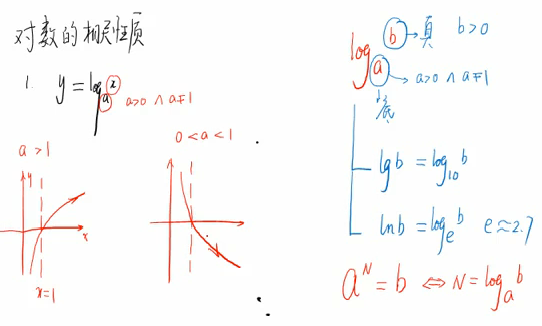 对数的相关性质
1. y = logₐx a>0 ∧ a≠1
a>1
y
x
x=1
0<a<1
logₐb
b → 真 b>0
a → a>0 ∧ a≠1
底
lg b = log₁₀b
ln b = logₑb e≈2.7
aᴺ = b ⇔ N = logₐb